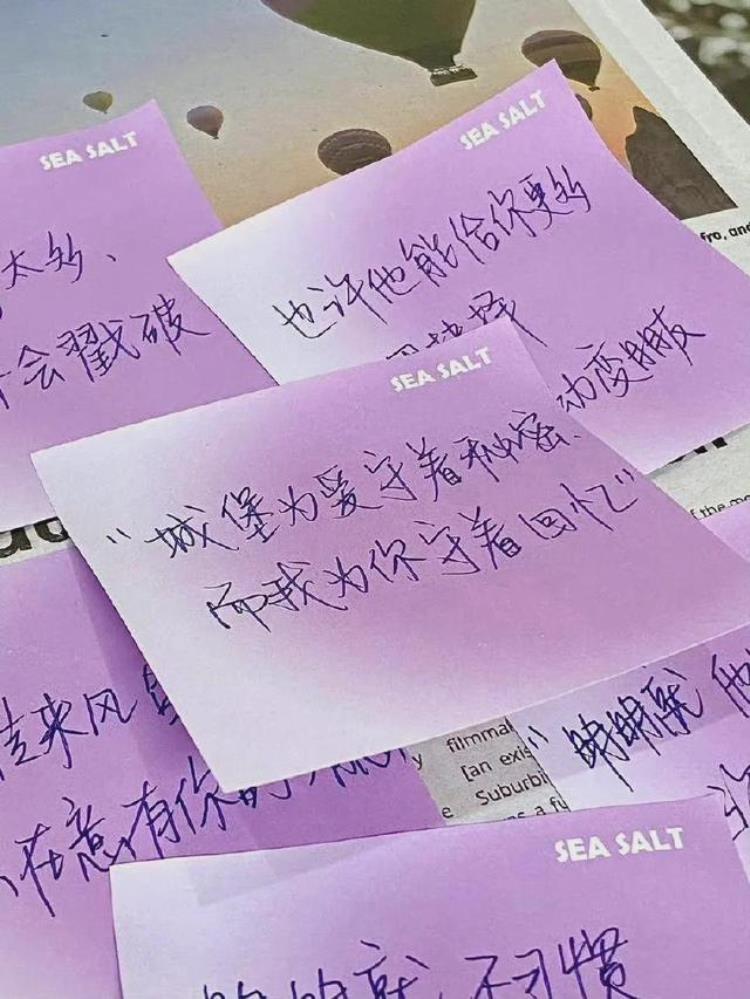 SEA SALT
太多、
会戳破
SEA SALT
也许他能给你更多
动变朋友
fro, and
SEA SALT
“城堡为爱守着秘密、
而我为你守着回忆”
of the m
来风
在意有你的
filmmal
[an exis
Suburbi
s a fu
“明明就他
SEA SALT
的就不习惯